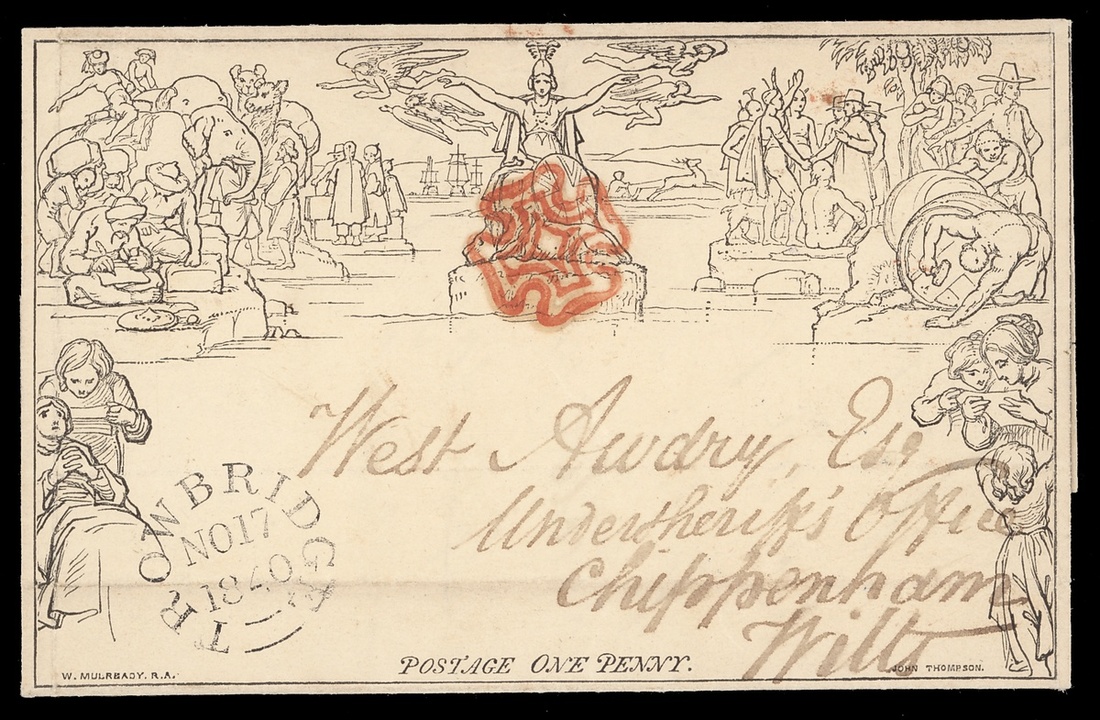 West Awdry Esq
Undersheriff's Office
Chippenham
Wilts
TROWBRIDGE
NO 17
1840
POSTAGE ONE PENNY.
W. MULREADY, R.A.
JOHN THOMPSON.